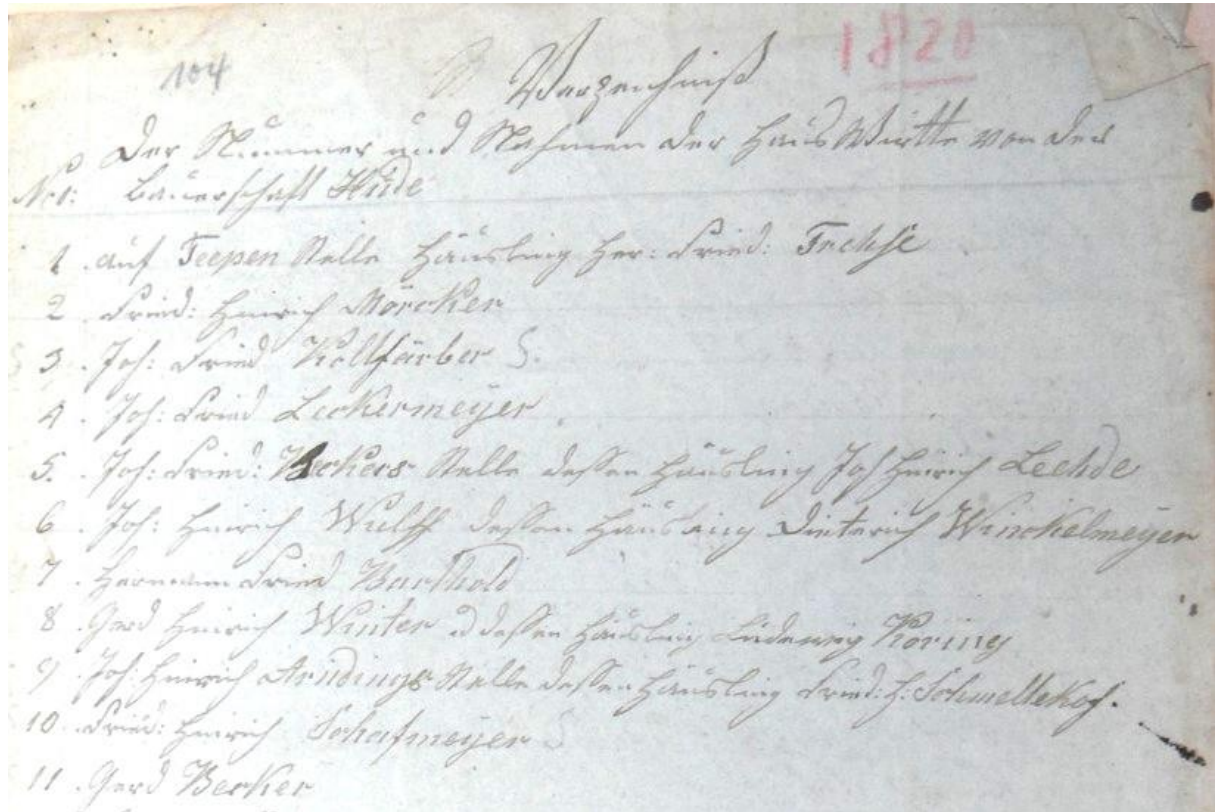 104
1820
Verzeichniß
Der Nummer und Nahmen der Haus Wirtte von der
No: Bauerschaft Hüde
1. auf Teepen Stelle Häusling Her: Fried:
2. Fried: Heinrich Mörcker
3. Joh: Fried Kollfärber S.
4. Joh: Fried Leckermeyer
5. Joh: Fried: Beckers Stelle dessen Häusling Joh Heinrich
6. Joh: Heinrich Wulff dessen Häusling Dieterich Winckelmeyer
7. Hermann Fried Barthold
8. Gerd Heinrich Winter dessen Häusling Ludewig Koring
9. Joh: Heinrich Stelle dessen Häusling Fried: H: Schmellekof.
10. Fried: Heinrich Schafmeyer
11. Gerd Becker